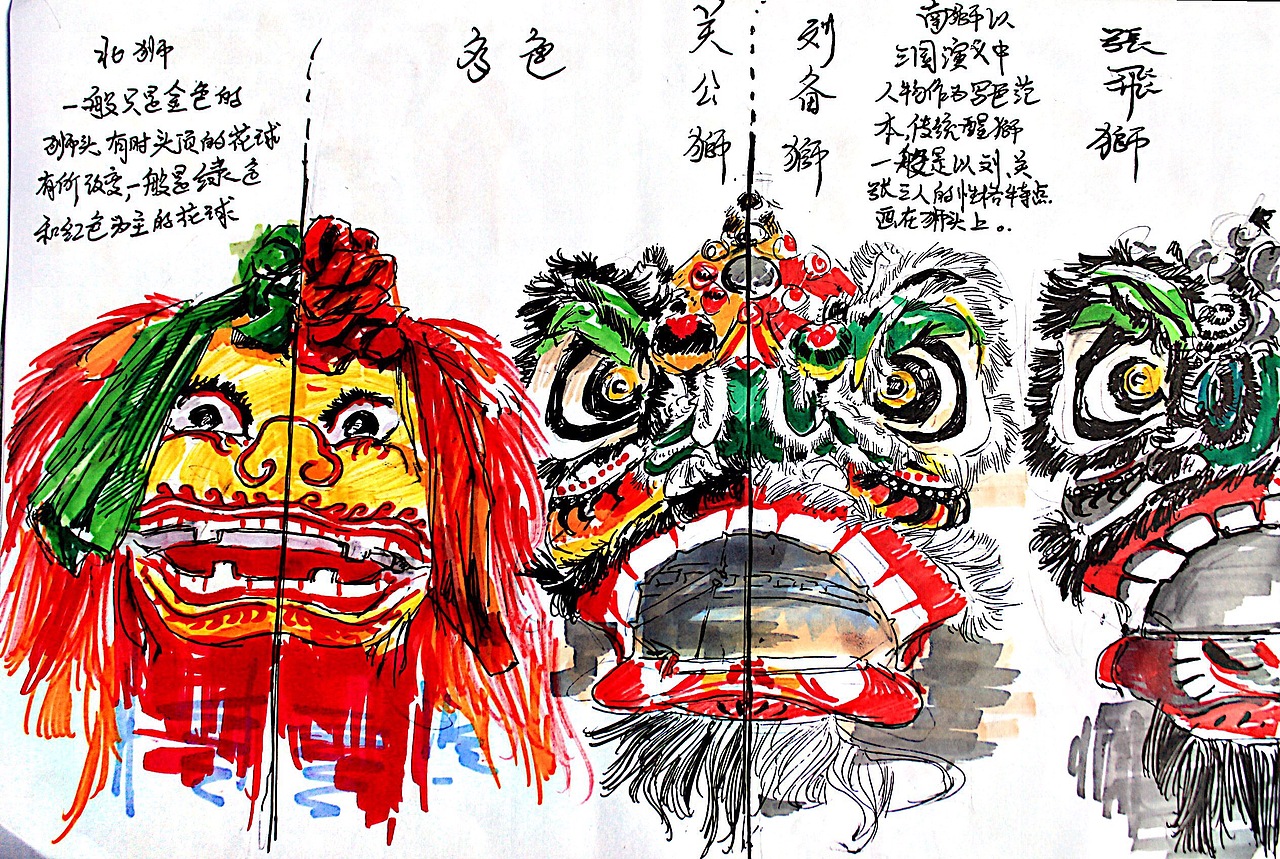 北狮
一般只是金色的
狮头,有时头顶的花球
有所改变,一般是绿色
和红色为主的花球
角色
关公獅
刘备獅
南狮以
三国演义中
人物作为角色范
本,传统醒獅
一般是以刘、关
张三人的性格特点
画在狮头上。
張飛獅